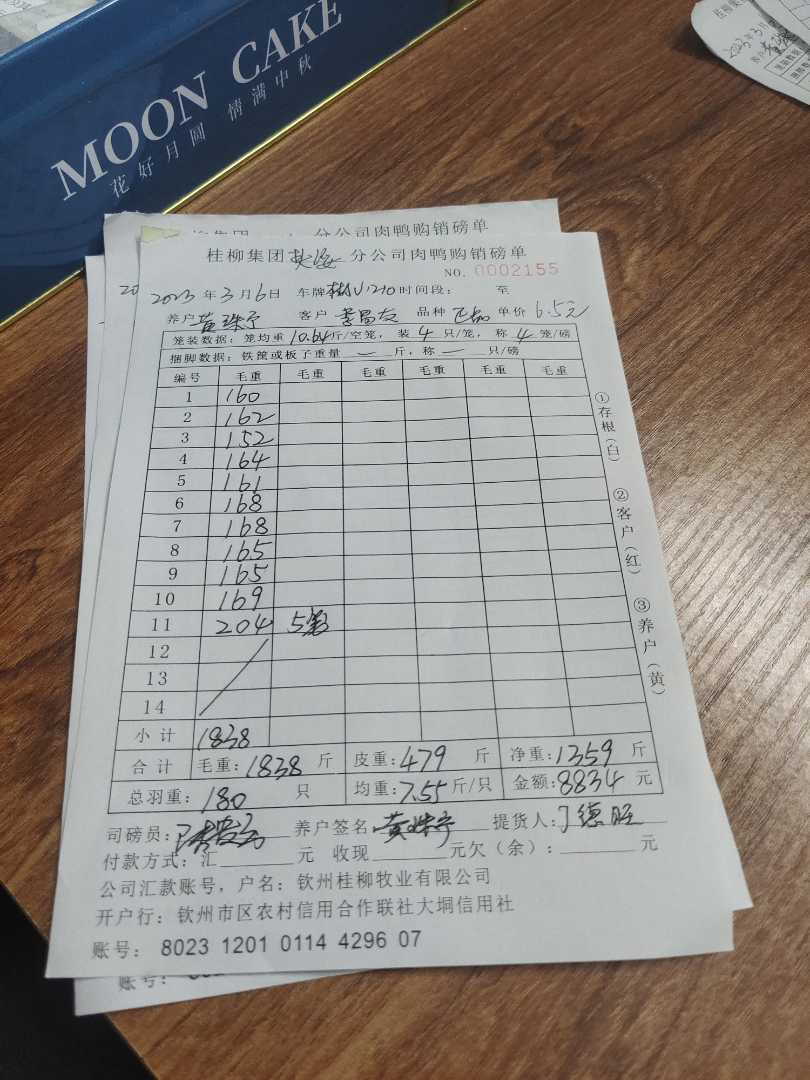 MOON CAKE
花好月圆 情满中秋
分公司肉鸭购销磅单
桂柳集团 分公司肉鸭购销磅单
NO. 0002155
2023年3月6日 车牌 1210时间段: 至
养户 黄珠宁 客户 李昌友 品种 单价 6.5元
笼装数据: 笼均重10.64斤/空笼, 装4只/笼, 称4笼/磅
捆脚数据: 铁篦或板子重量一斤, 称一只/磅
编号 毛重 毛重 毛重 毛重 毛重 毛重
1 160
2 162
3 152
4 164
5 161
6 168
7 168
8 165
9 165
10 169
11 204 5笼
12
13
14
小计 1838
合计 毛重:1838斤 皮重:479斤 净重:1359斤
总羽重:180只 均重:7.55斤/只 金额:8834元
司磅员: 养户签名 黄珠宁 提货人:丁德旺
付款方式: 汇 元 收现 元欠(余): 元
公司汇款账号, 户名: 钦州桂柳牧业有限公司
开户行: 钦州市区农村信用合作联社大垌信用社
账号: 8023 1201 0114 4296 07
账号:
①存根(白)
②客户(红)
③养户(黄)